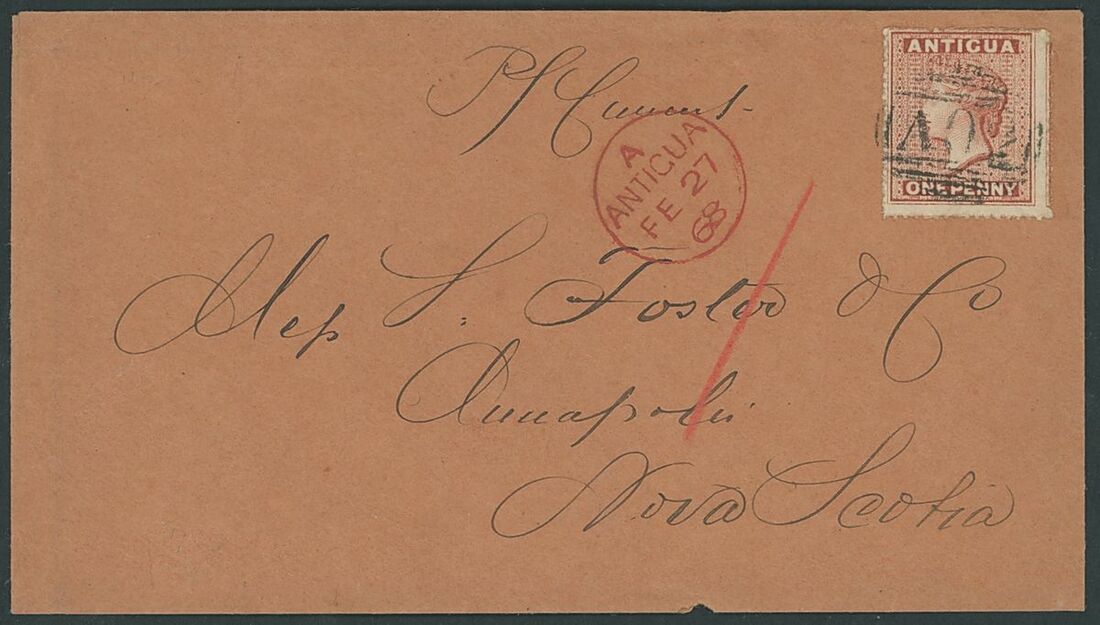 ANTIGUA
A02
ONE PENNY
A
ANTIGUA
FE 27
68
Foster & Co
Annapolis
Nova Scotia